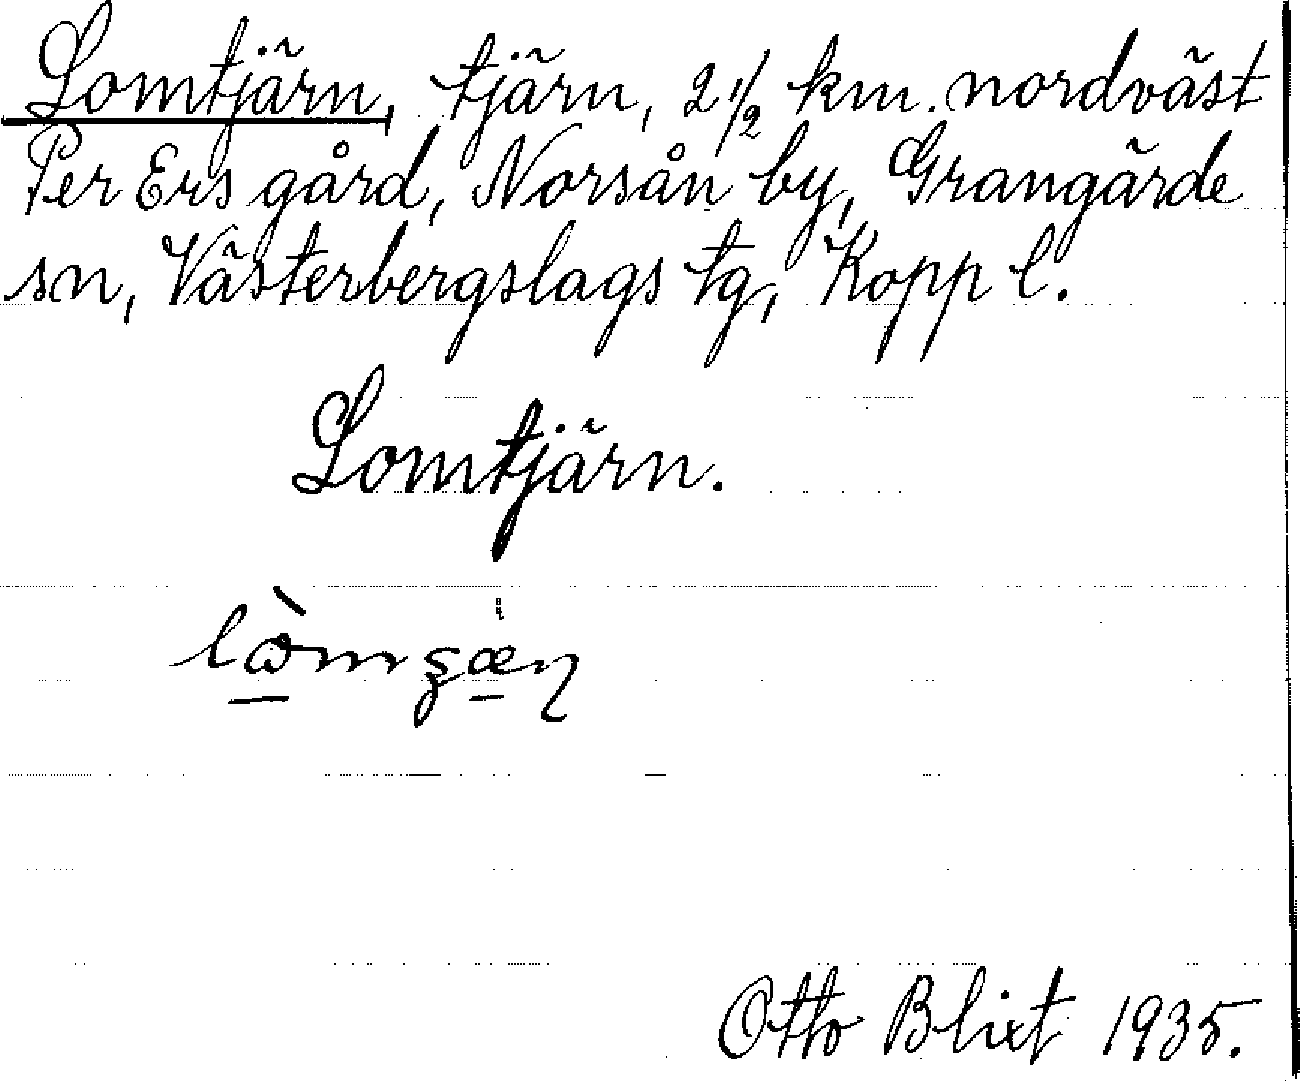 Lomtjärn, tjärn, 2 1/2 km. nordväst
Per Ers gård, Norsån by, Grangärde
sn, Västerbergslags tg, Kopp l.
Lomtjärn.
Otto Blixt 1935.